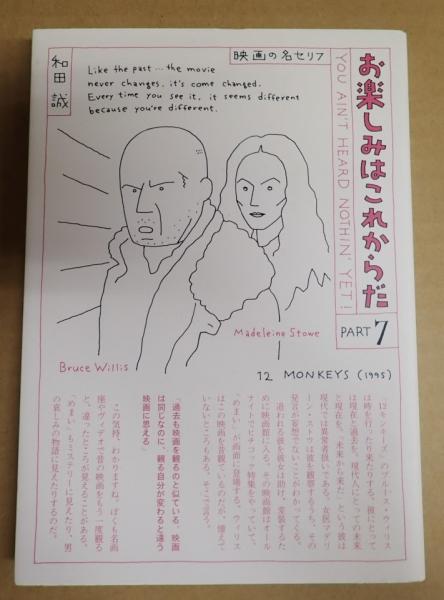 お楽しみはこれからだ
YOU AIN'T HEARD NOTHIN' YET!
PART 7
映画の名セリフ
和田誠
Like the past … the movie
never changes, it's come changed.
Every time you see it, it seems different
because you're different.
Madeleine Stowe
Bruce Willis
12 MONKEYS (1995)
「12モンキーズ」のブルース・ウィリス
は時を行ったり来たりする。彼にとって
は現在と過去を。現代人にとっての未来
と現在を。「未来から来た」という彼は
現代では異常者扱いである。女医マデリ
ーン・ストウは彼を観察するうち、その
発言が妄想でないことがわかってくる。
追われる彼を彼女は助け、変装するた
めに映画館に入る。その映画館はオール
ナイトでヒチコック特集をやっていて、
「めまい」が画面に登場する。ウィリス
はこの映画を昔観ているのだが、憶えて
いないところもある。そこで言う。
「過去も映画を観るのと似ている。映画
は同じなのに、観る自分が変わると違う
映画に思える」
この気持、わかりますね。ぼくも名画
座やヴィデオで昔の映画をもう一度観る
と、違ったところが見えることがある。
「めまい」もミステリーに見えたり、男
の哀しみの物語に見えたりするのだ。